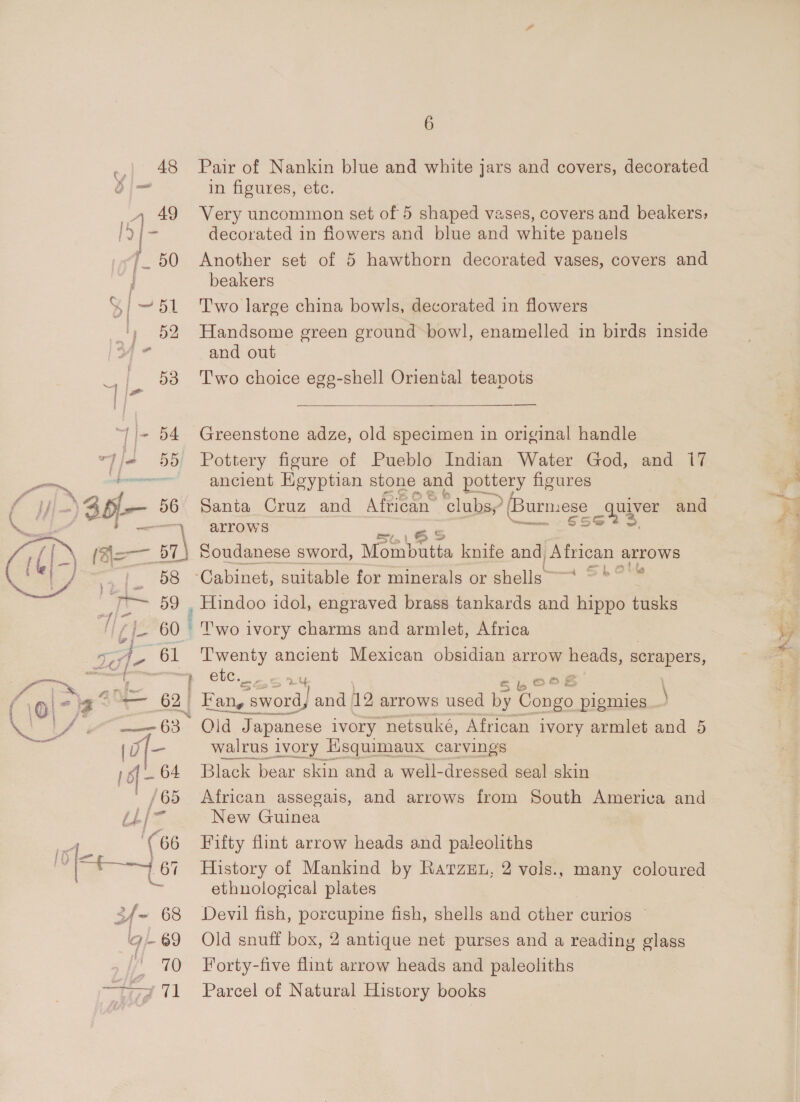 6
48 Pair of Nankin blue and white jars and covers, decorated
in figures, etc.
49 Very uncommon set of 5 shaped vases, covers and beakers,
decorated in flowers and blue and white panels
50 Another set of 5 hawthorn decorated vases, covers and
beakers
51 Two large china bowls, decorated in flowers
52 Handsome green ground bowl, enamelled in birds inside
and out
53 Two choice egg-shell Oriental teapots
54 Greenstone adze, old specimen in original handle
55 Pottery figure of Pueblo Indian Water God, and 17
ancient Egyptian stone and pottery figures
56 Santa Cruz and African clubs, Burmese quiver and
arrows
57 Soudanese sword, Mombutta knife and African arrows
58 Cabinet, suitable for minerals or shells
59 Hindoo idol, engraved brass tankards and hippo tusks
60 Two ivory charms and armlet, Africa
61 Twenty ancient Mexican obsidian arrow heads, scrapers,
etc.
62 Fan, sword, and 12 arrows used by Congo pigmies
63 Old Japanese ivory netsuké, African ivory armlet and 5
walrus ivory Esquimaux carvings
64 Black bear skin and a well-dressed seal skin
65 African assegais, and arrows from South America and
New Guinea
66 Fifty flint arrow heads and paleoliths
67 History of Mankind by RATZEL, 2 vols., many coloured
ethnological plates
68 Devil fish, porcupine fish, shells and other curios
69 Old snuff box, 2 antique net purses and a reading glass
70 Forty-five flint arrow heads and paleoliths
71 Parcel of Natural History books